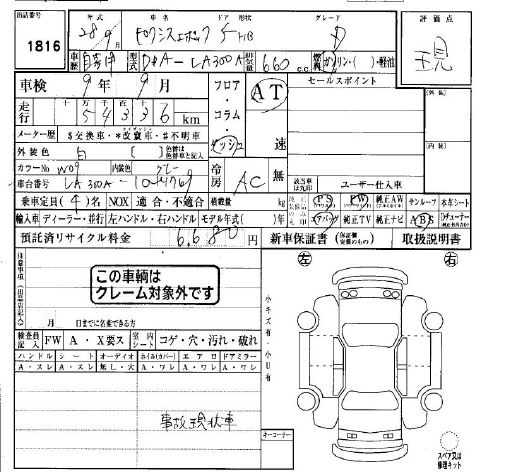 出品番号 年式 車名 ドア 形状 グレード 評価点
1816 28年9月 ピクシスエポック 5 HB D 現
車歴 自家用 型式 DBA-LA300A 排気量 660 cc 燃料 ガソリン・( )・軽油
車検 9年 9月 フロア・コラム・ダッシュ AT 速 セールスポイント 〔外装〕
走行 十 万 千 百 十 一
54336 km
メーター歴 $交換車・*改竄車・#不明車
外装色 白 色替は色替車と記入
カラーNo W09 内装色 グレー 冷房 AC 無 該当車は丸印 ユーザー仕入車 〔内装〕
車台番号 LA300A-
乗車定員(4)名 NOX 適合・不適合 積載量 kg 装備 PS PW 純正AW サンルーフ 本革シート
輸入車 ディーラー・並行 左ハンドル・右ハンドル モデル年式( ) エアバッグ 純正TV 純正ナビ ABS
預託済リサイクル料金 6,680 円 新車保証書 取扱説明書
注意事項(出品店記入)
この車輌は
クレーム対象外です
左 右
小キズ有・小凹有
月 日までに名変できる方
検査員記入 FW A・X要ス 室内シート コゲ・穴・汚れ・破れ
ハンドル シート オーディオ ホイル(カバー) エアロ ドアミラー
A・スレ A・スレ 無し・欠 A・ワレ A・ワレ A・ワレ
事故現状車
キーコーリー
スペア又は
修理キット